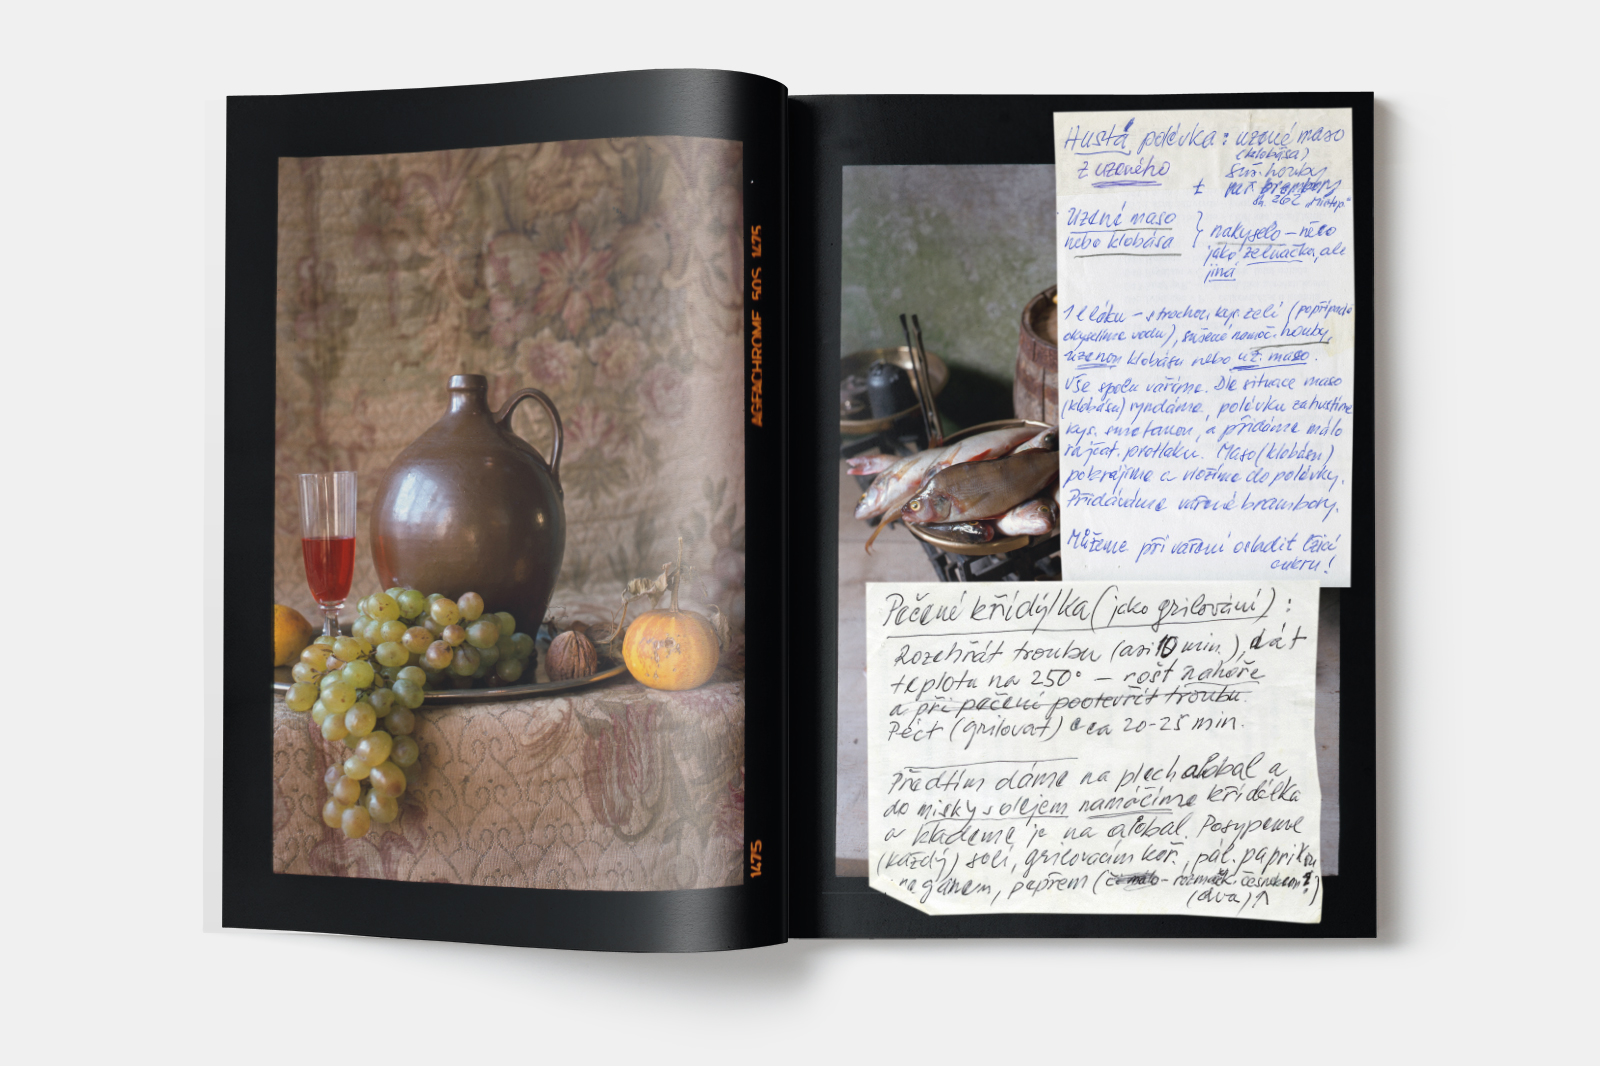 AGFACHROME 50S 1475
1475
Hustá polévka : uzené maso
(klobása)
z uzeného
suš. houby
+ brambory
str. 262
Uzené maso
nebo klobása } nakyselo – něco
jako zelňačka, ale
jiná
1 l láku – s trochou kys. zelí (popřípadě
okyselíme vodu), sušené namoč. houby,
uzenou klobásu nebo uz. maso.
Vše spolu vaříme. Dle situace maso
(klobásu) vyndáme, polévku zahustíme
kys. smetanou, a přidáme málo
rajčat. protlaku. Maso (klobásu)
pokrájíme a vložíme do polévky.
Přidáváme vařené brambory.
Můžeme při vaření osladit lžící
cukru!
Pečené křídýlka (jako grilování) :
Rozehřát troubu (asi 10 min.), dát
teplotu na 250° – rošt nahoře
a při pečení pootevřít troubu.
Péct (grilovat) cca 20-25 min.
Předtím dáme na plech alobal a
do misky s olejem namáčíme křidélka
a klademe je na alobal. Posypeme
(každý) solí, grilovacím koř., pál. paprikou
na gánem, pepřem ( – rozmačk. česnekem?)
(dva) ↑